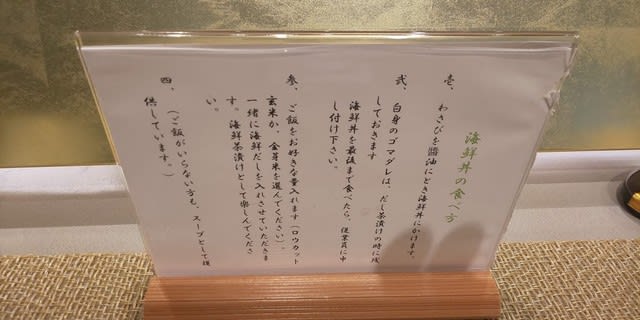 海鮮丼の食べ方
壱、 わさびを醤油にとき海鮮丼にかけます。
弐、 白身のゴマダレは、だし茶漬けの時に残
しておきます
海鮮丼を最後まで食べたら、従業員に申
し付け下さい。
参、 ご飯をお好きな量入れます(ロウカット
玄米か、金芽米を選んでください)。
一緒に海鮮だしを入れさせていただきま
す。海鮮茶漬けとして楽しんでくださ
い。
四、 (ご飯がいらない方も、スープとして提
供しています。)